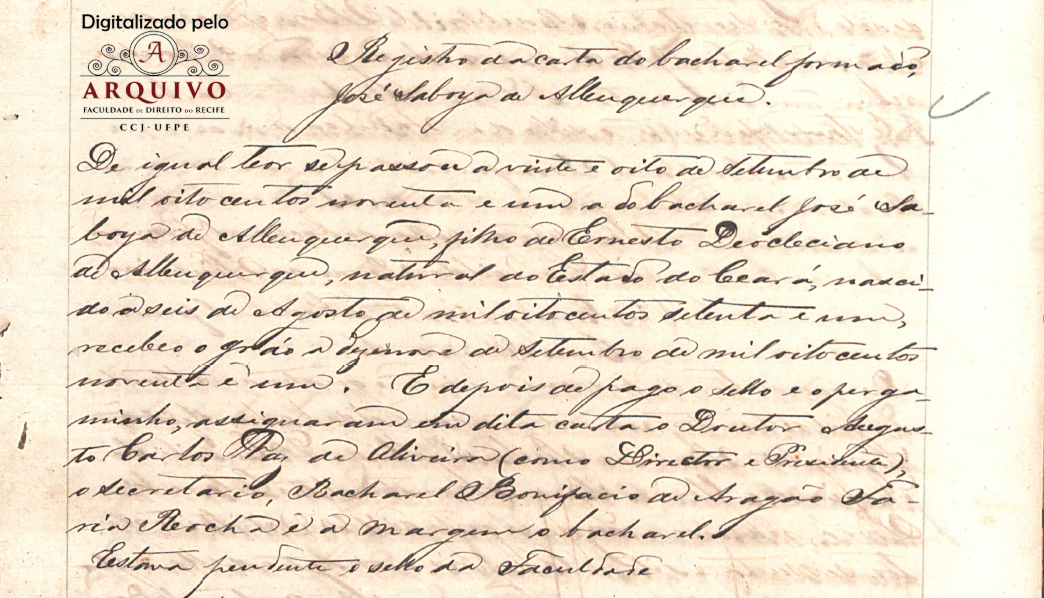 Digitalizado pelo
A
ARQUIVO
FACULDADE DE DIREITO DO RECIFE
CCJ-UFPE
Registro da carta do bacharel formado,
José Saboya de Albuquerque.
De igual teor se passou a vinte e oito de Setembro de
mil oito centos noventa e um a do bacharel José Sa-
boya de Albuquerque, filho de Ernesto Deocleciano
de Albuquerque, natural do Estado do Ceará, nasci-
do a seis de Agosto de mil oito centos setenta e um,
recebeo o gráo a dezenove de Setembro de mil oito centos
noventa e um. E depois de pago o sello e o perga-
minho, assignaram em dita carta o Doutor Augus-
to Carlos Vaz de Oliveira (como Director e Presidente),
o secretario, Bacharel Bonifacio de Aragão Fa-
ria Rocha e a margem o bacharel.
Estava pendente o sello da Faculdade